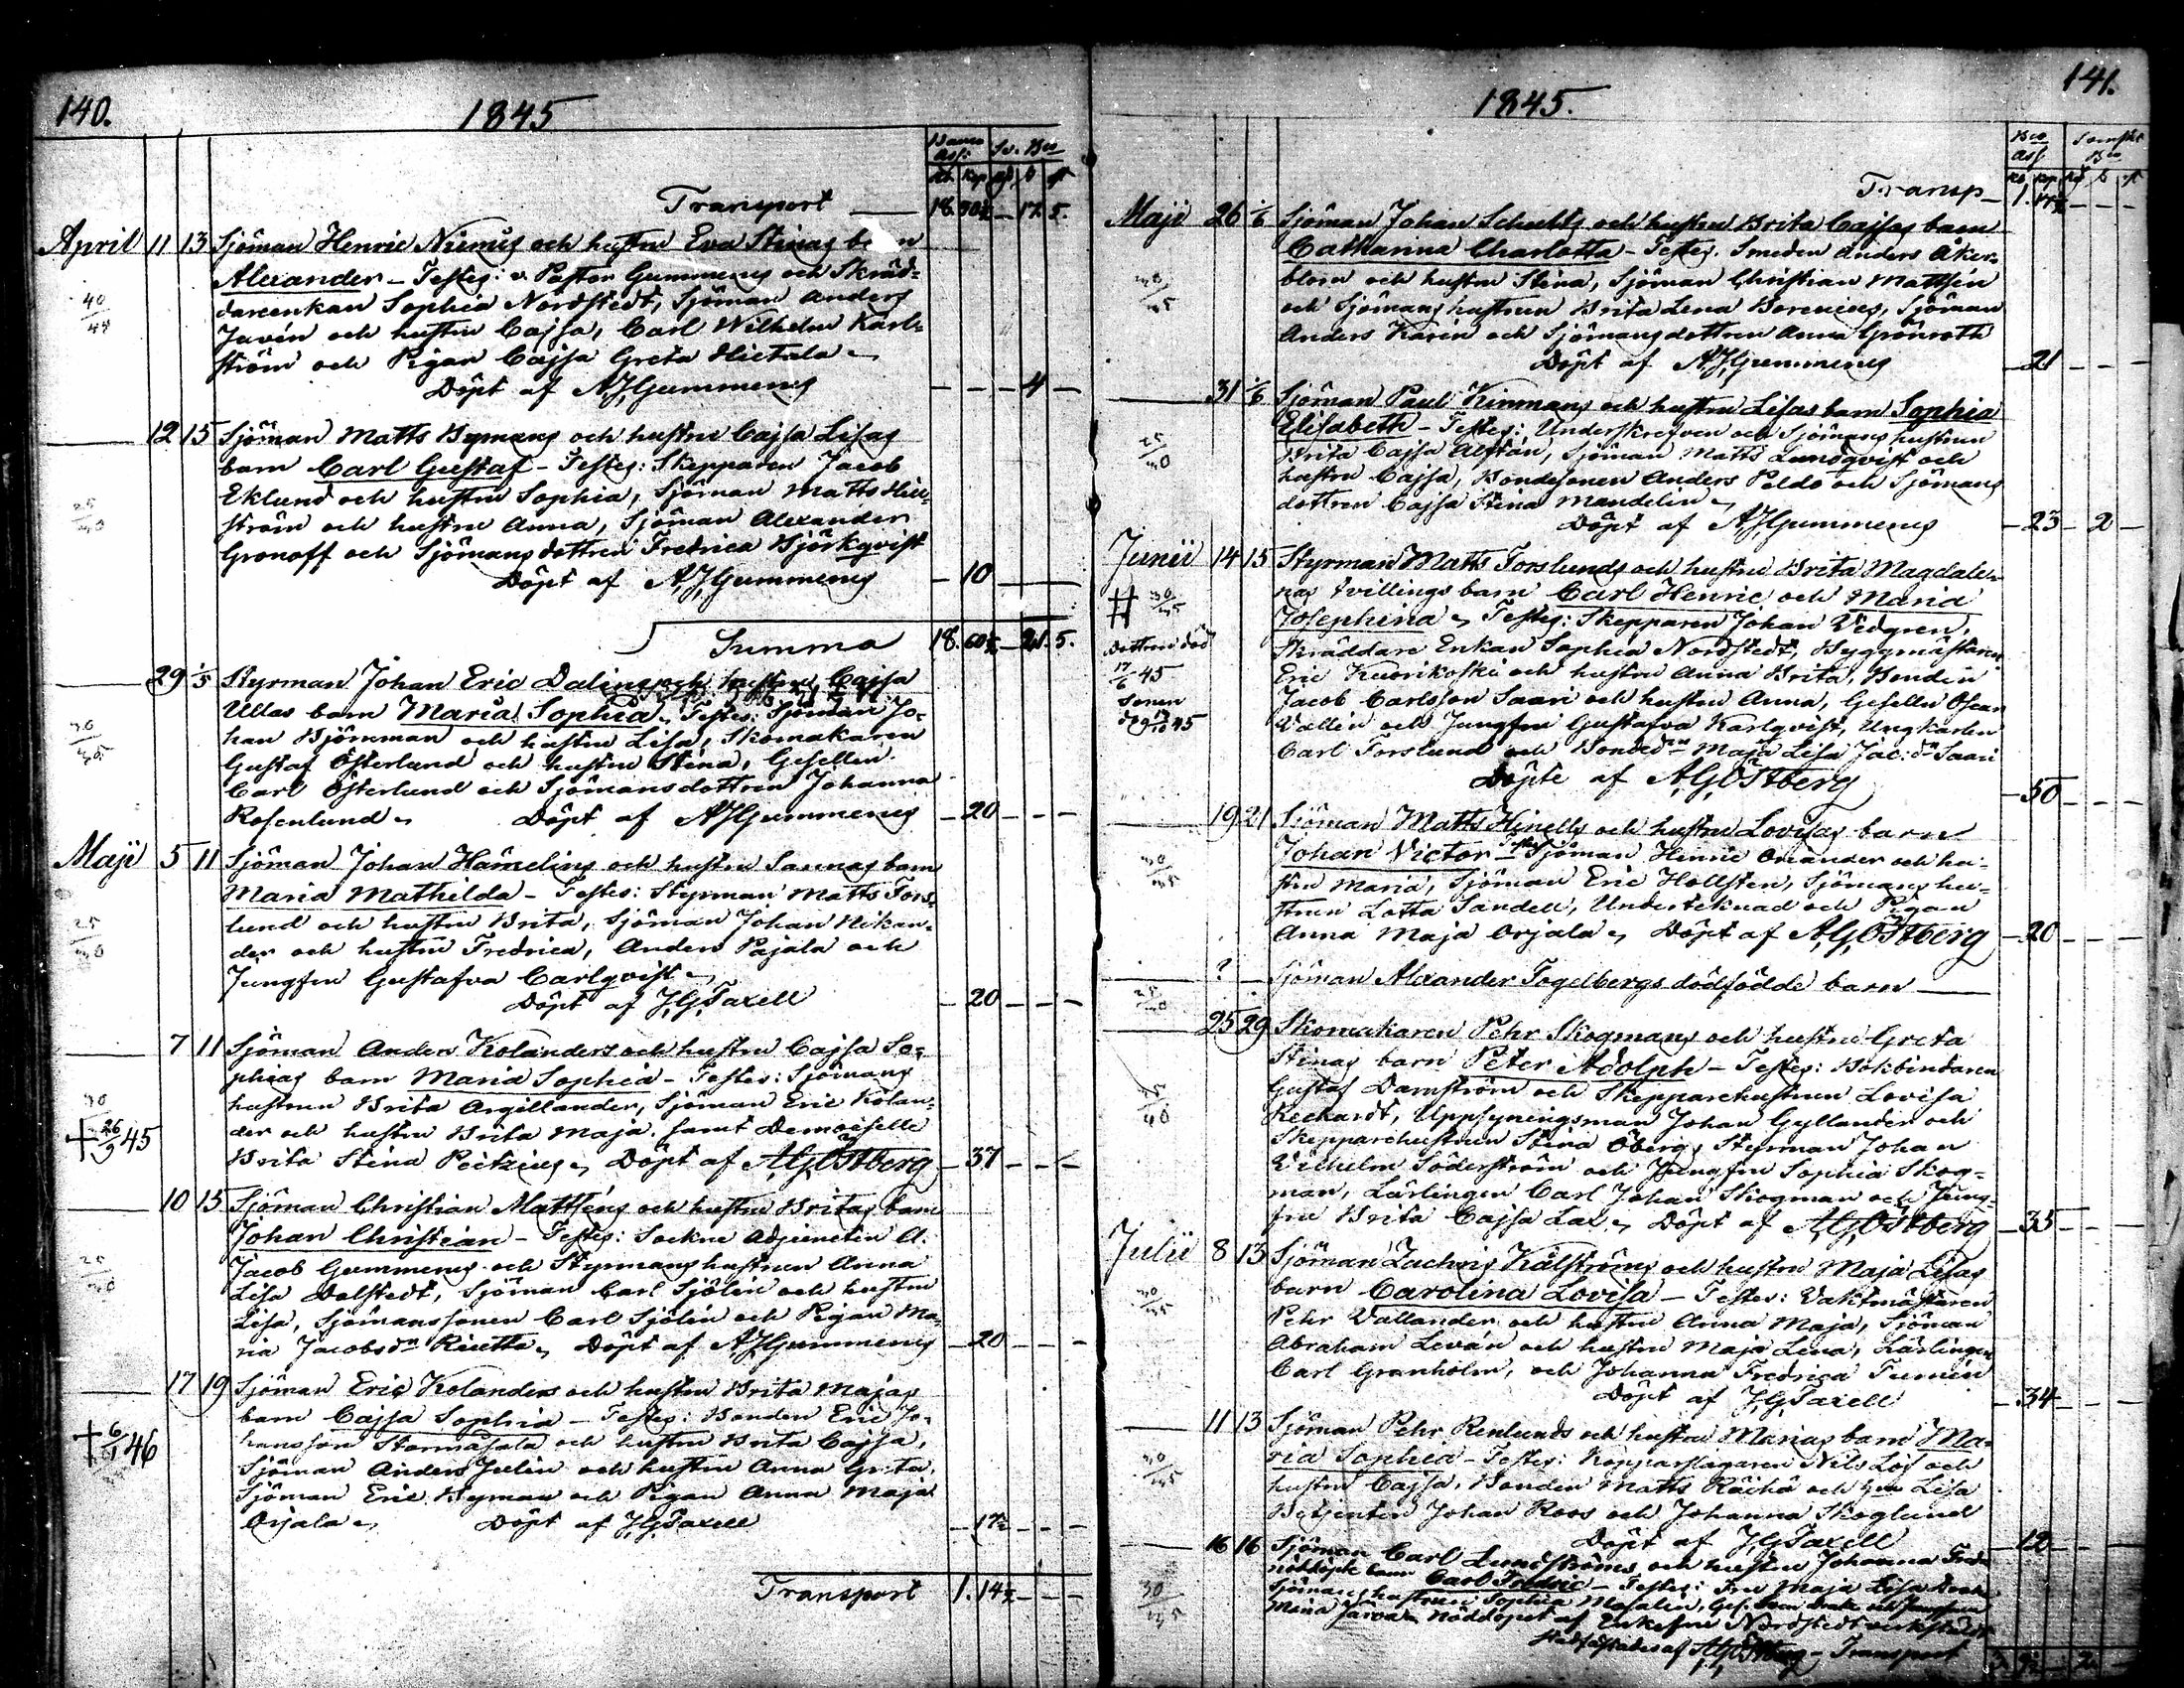 140.
1845
Banco Ass: Sv. Bco
Rb. Kop. Rd. s. rst
Transport — 18. 50½ — 17. 5.
April 11 13 Sjöman Henric Niemis och hustru Eva Stinas barn
40/44 Alexander – Testes: v. Pastor Gummerus och Skräd-
dareenkan Sophia Nordstedt, Sjöman Anders
Javén och hustru Cajsa, Carl Wilhelm Karl-
ström och Pigan Cajsa Greta Hietala
Döpt af A.J.Gummerus — — — 4 —
12 15 Sjöman Matts Nymans och hustru Cajsa Lisas
barn Carl Gustaf – Testes: Skepparen Jacob
25/30 Eklund och hustru Sophia, Sjöman Matts Hell-
ström och hustru Anna, Sjöman Alexander
Gronoff och Sjömans dottren Fredrica Björkqvist
Döpt af A.J.Gummerus — 10 —
Summa 18. 60½ — 21. 5.
29 1/5 Styrman Johan Eric Dalins och hustru Cajsa
Ullas barn Maria Sophia. Testes: Sjöman Jo-
30/35 han Björnman och hustru Lisa, Skomakaren
Gustaf Österlund och hustru Stina, Gesellen
Carl Österlund och Sjömansdottren Johanna
Rosenlund Döpt af A.J.Gummerus — 20 — — —
Maji 5 11 Sjöman Johan Hämelins och hustru Sannas barn
Maria Mathilda – Testes: Styrman Matts Fors-
25/30 lund och hustru Brita, Sjöman Johan Nikan-
der och hustru Fredrica, Anders Pajala och
Jungfru Gustafva Carlqvist
Döpt af J.G.Taxell — 20 — — —
7 11 Sjöman Anders Kolanders och hustru Cajsa So-
phias barn Maria Sophia – Testes: Sjömans
hustrun Brita Argillander, Sjöman Eric Kolan-
† 26/9 45 der och hustru Brita Maja. samt Demoiselle
Brita Stina Peitzius Döpt af A.G.Östberg — 37 — — —
10 15 Sjöman Christian Mattséns och hustru Britas barn
Johan Christian – Testes: Sockne Adjuncten A.
Jacob Gummerus och Styrmans hustrun Anna
Lisa Dalstedt, Sjöman Carl Sjölin och hustru
Lisa, Sjömanssonen Carl Sjölin och Pigan Ma-
ria Jacobsdr Riutta Döpt af A.J.Gummerus — 20 — — —
17 19 Sjöman Eric Kolanders och hustru Brita Majas
barn Cajsa Sophia – Testes: Bonden Eric Jo-
† 6/1 46 hansson Stormåsala och hustru Brita Cajsa,
Sjöman Anders Julin och hustru Anna Greta,
Sjöman Eric Nyman och Pigan Anna Maja
Orjala Döpt af J.G.Taxell — 17½ — — —
Transport 1. 14½ — — —
141.
1845.
Bco Ass
Transp — 1. 14½ — — —
Maji 26 1/6 Sjöman Johan Schultz och hustru Brita Cajsas barn
Catharina Charlotta – Testes. Smeden Anders Åker-
30/35 blom och hustru Stina, Sjöman Christian Mattsén
och Sjömans hustrun Brita Lena Borenius, Sjöman
Anders Karén och Sjömansdottren Anna Grönroth
Döpt af A.J.Gummerus — 21 — — —
31 1/6 Sjöman Paul Kinmans och hustru Lisas barn Sophia
Elisabeth – Testes: Underskrefven och Sjömans hustrun
25/30 Brita Cajsa Alftán, Sjöman Matts Lundqvist och
hustru Cajsa, Bondesonen Anders Peldo och Sjömans
dottren Cajsa Stina Mandelin
Döpt af A.J.Gummerus — 23 — 2 —
Junii 14 15 Styrman Matts Forslunds och hustru Brita Magdale-
30/35 nas tvillings barn Carl Henric och Maria
Josephina. Testes: Skepparen Johan Vedgren,
Dottren död Skräddare Enkan Sophia Nordstedt, Byggmästaren
17/6 45 Eric Kuorikoski och hustru Anna Brita, Bonden
Sonen Jacob Carlsson Saari och hustru Anna, Gesellen Oscar
Wallin och Jungfru Gustafva Karlqvist, Ungkarlen
Carl Forslund och Bonded:n Maja Lisa Jac:dr Saari
Döpte af A.G.Östberg — 50 — — —
19 21 Sjöman Matts Hinells och hustru Lovisas barn
Johan Victor – Testes Sjöman Henric Oriander och hu-
30/35 stru Maria, Sjöman Eric Hollsten, Sjömans hu-
strun Lotta Sandell, Undertecknad och Pigan
Anna Maja Orjala Döpt af A.G.Östberg — 20 — — —
? — Sjöman Alexander Fogelbergs dödfödde barn —
25/30
25 29 Skomakaren Pehr Skogmans och hustru Greta
Stinas barn Peter Adolph – Testes: Bokbindaren
Gustaf Damström och Skepparehustrun Lovisa
Reckardt, Uppsyningsman Johan Gyllander och
Skepparehustrun Stina Öberg, Styrman Johan
Wilhelm Söderström och Jungfru Sophia Skog-
man, Lärlingen Carl Johan Skogman och Jung-
fru Brita Cajsa Lax Döpt af A.G.Östberg — 35 — — —
Julii 8 13 Sjöman Zachris Källströms och hustru Maja Lisas
barn Carolina Lovisa – Testes: Vaktmästaren
30/35 Pehr Wallander och hustru Anna Maja, Sjöman
Abraham Leván och hustru Maja Lena, Lärlingen
Carl Granholm, och Johanna Fredrica Tumén
Döpt af J.G.Taxell — 34 — — —
11 13 Sjöman Pehr Renlunds och hustru Marias barn Ma-
ria Sophia – Testes: Kopparslagaren Nils Löf och
30/35 hustru Cajsa, Bonden Matts Räihä och hru Lisa
Betjenten Johan Roos och Johanna Skoglund
Döpt af J.G.Taxell — 12 — — —
16 16 Sjöman Carl Lundströms och hustru Johanna
nöddöpte barn Carl Fredric – Testes: Fru Maja Lisa
30/35 Sjömans hustrun Sophia Masalin,
Nöddöpt af Enkefru Nordstedt
stadfästades af A.G.Östberg – Transport